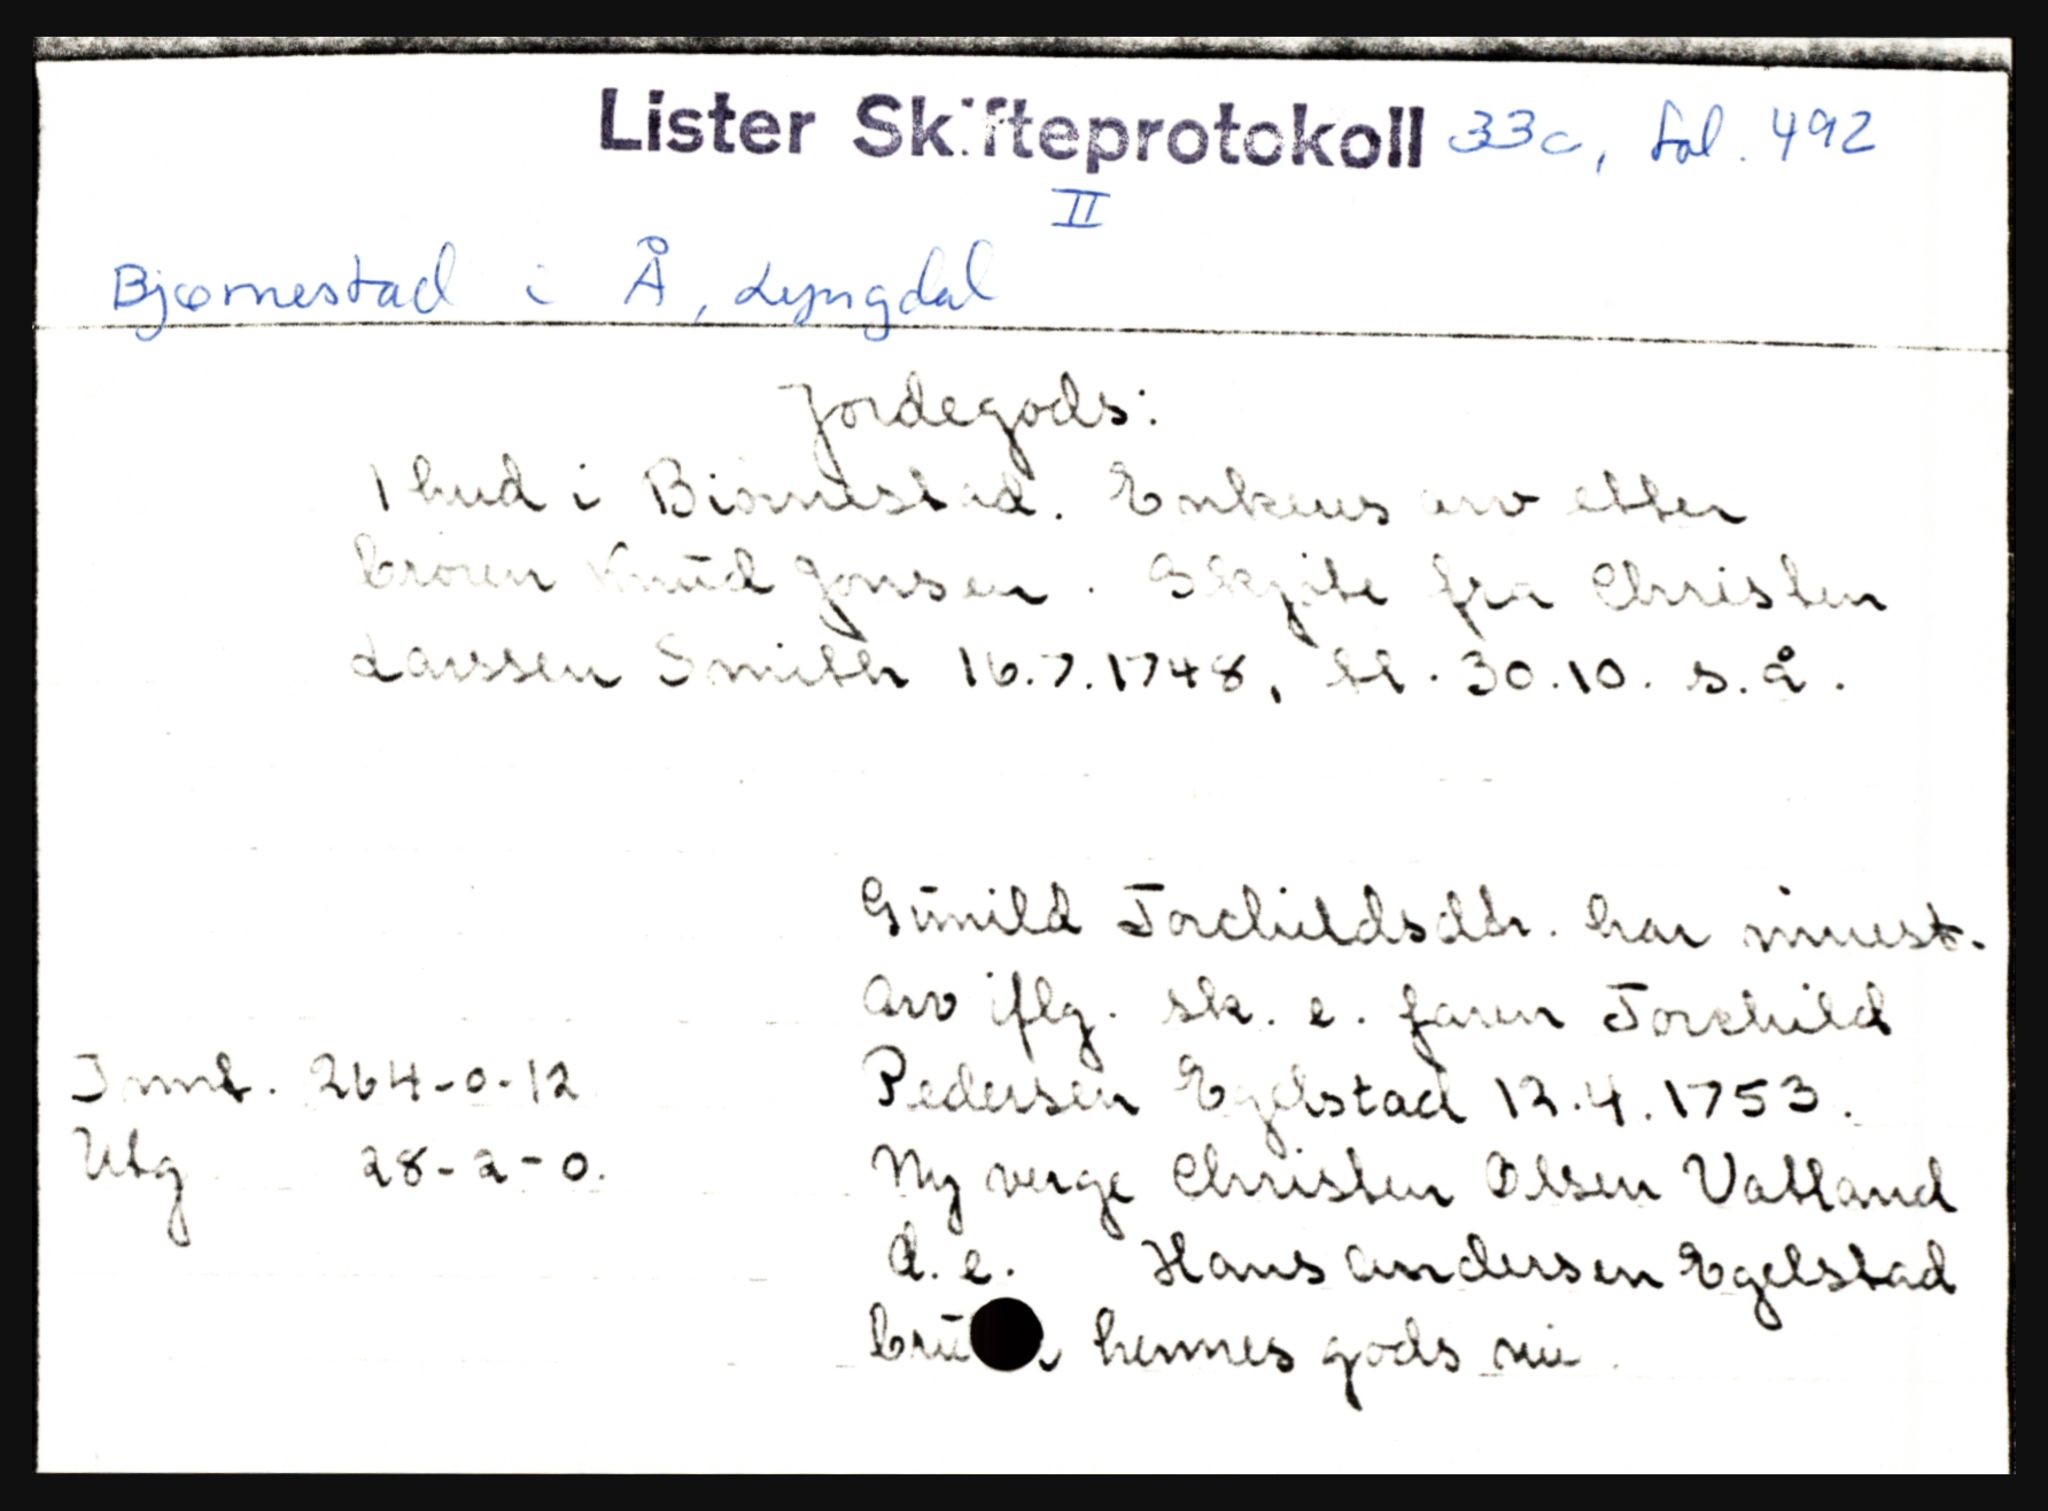 Lister Skifteprotokoll 33c, fol. 492
II
Bjørnestad i Å, Lyngdal
Jordegods:
1 hud i Biørnestad. Enkens arv etter
broren Knud Jonsen. Skjøte fra Christen
Larssen Smith 16.7.1748, tl. 30.10. s.å.
Gunild Torchildsdtr. har innest.
Arv iflg. sk. e. faren Torchild
Innt. 264-0-12
Pedersen Egelstad 12.4.1753.
Utg 28-2-0.
Ny verge Christen Olsen Vatland
d.e. Hans Andersen Egelstad
hennes gods nu.